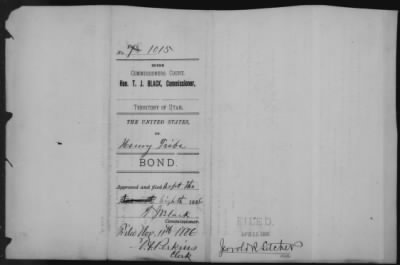 No. 1015
BEFORE
COMMISSIONERS COURT.
Hon. T. J. BLACK, Commissioner,
TERRITORY OF UTAH.
THE UNITED STATES,
vs.
Henry Tribe
BOND.
Approved and filed Sept the
eighth 1886
T J Black
Commissioner.
Filed Nov. 11th 1886
Perkins
Clerk
FILED